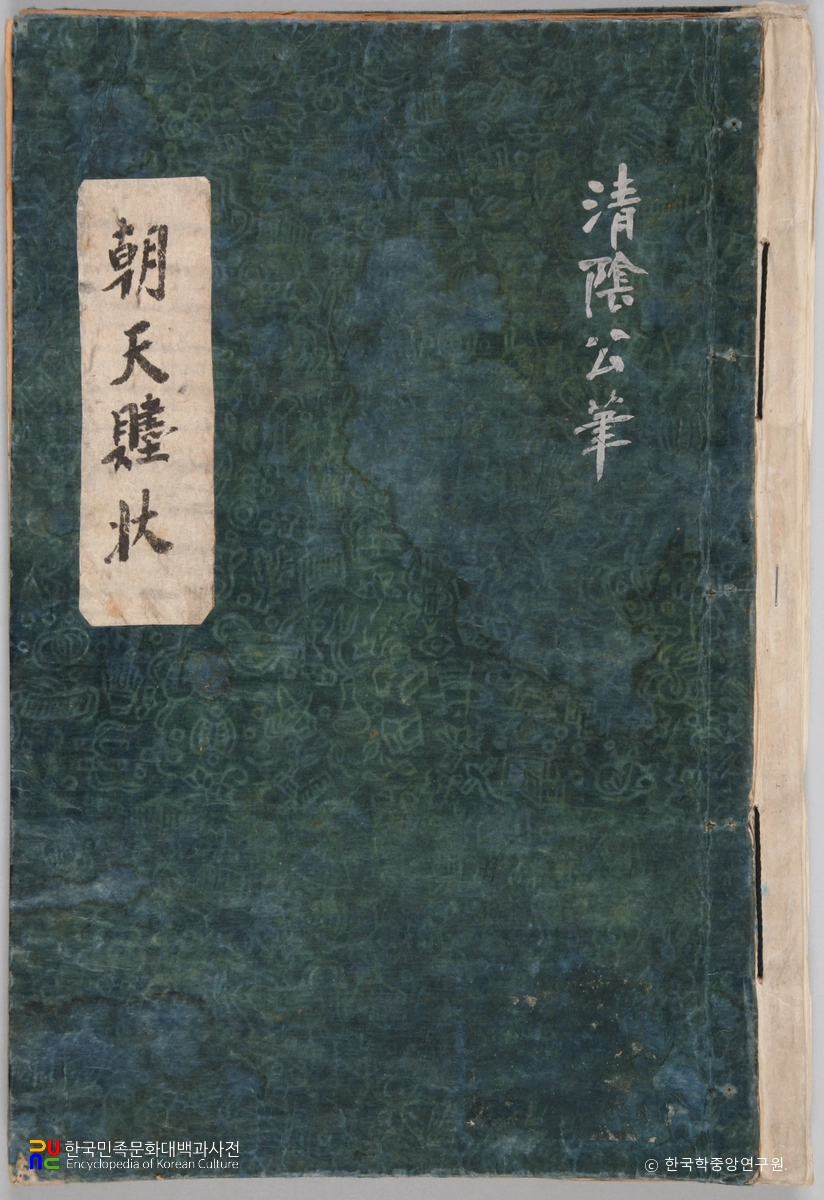 清陰公筆
朝天贐状
한국민족문화대백과사전
Encyclopedia of Korean Culture
ⓒ 한국학중앙연구원.